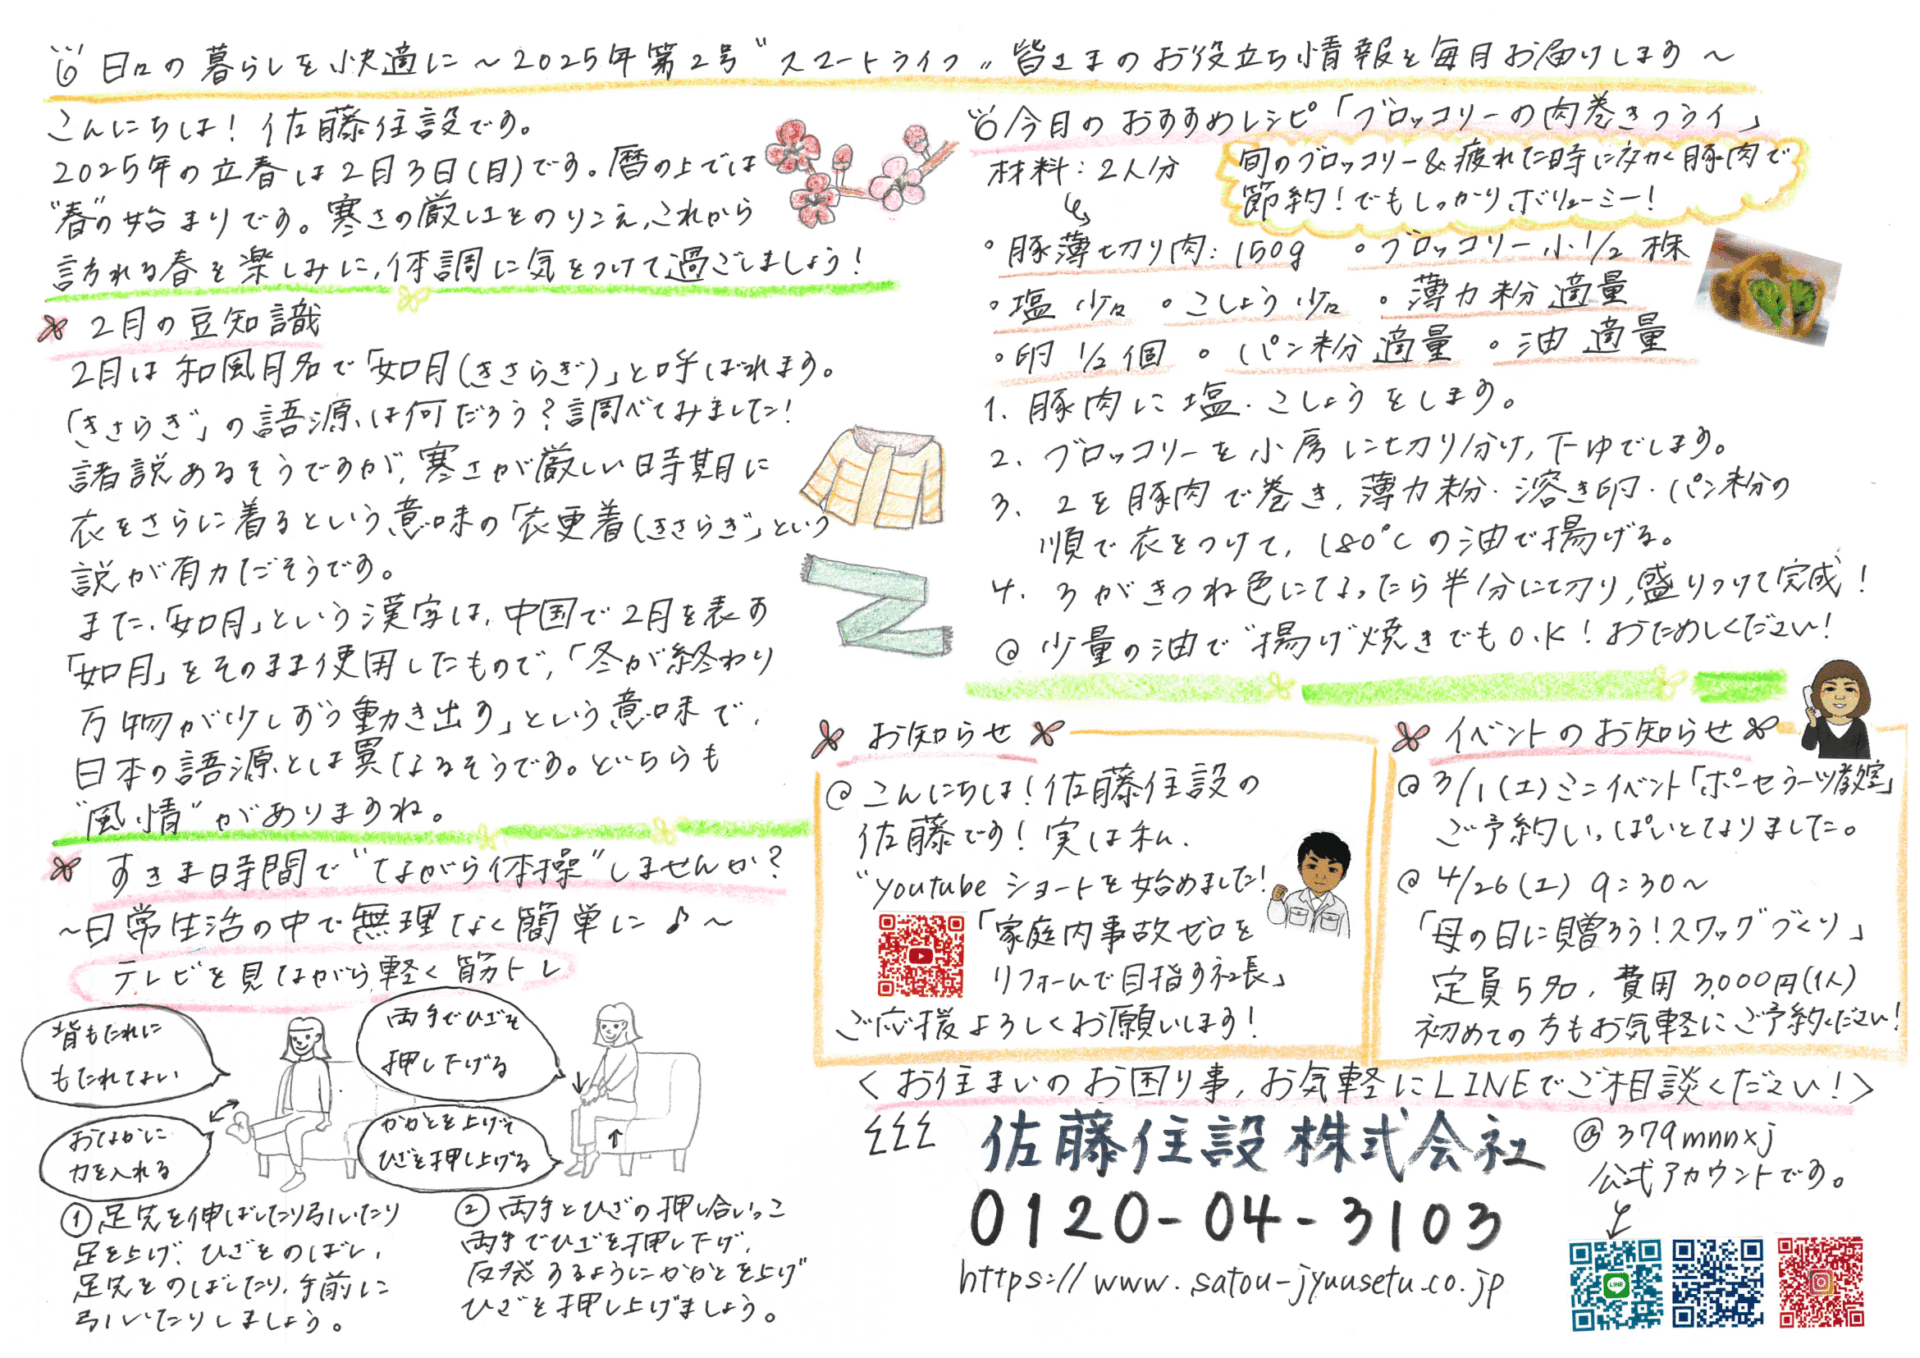 日々の暮らしを快適に～2025年第2号"スマートライフ"皆さまのお役立ち情報を毎月お届けします～
こんにちは！佐藤住設です。
2025年の立春は2月3日(月)です。暦の上では
"春"の始まりです。寒さの厳しさをのりこえ、これから
訪れる春を楽しみに、体調に気をつけて過ごしましょう！
2月の豆知識
2月は和風月名で「如月(きさらぎ)」と呼ばれます。
「きさらぎ」の語源は何だろう？調べてみました！
諸説あるそうですが、寒さが厳しい時期に
衣をさらに着るという意味の「衣更着(きさらぎ」という
説が有力だそうです。
また、「如月」という漢字は、中国で2月を表す
「如月」をそのまま使用したもので、「冬が終わり
万物が少しずつ動き出す」という意味で、
日本の語源とは異なるそうです。どちらも
"風情"がありますね。
すきま時間で"ながら体操"しませんか？
～日常生活の中で無理なく簡単に♪～
テレビを見ながら軽く筋トレ
背もたれに
もたれてよい
おなかに
力を入れる
両手でひざを
押し下げる
かかとを上げて
ひざを押し上げる
①足先を伸ばしたり引いたり
足を上げ、ひざをのばし、
足先をのばしたり、手前に
引いたりしましょう。
②両手とひざの押し合いっこ
両手でひざを押し下げ、
反発するようにかかとを上げ
ひざを押し上げましょう。
今月のおすすめレシピ「ブロッコリーの肉巻きフライ」
材料：2人分
旬のブロッコリー&疲れた時に効く豚肉で
節約！でもしっかりボリューミー！
・豚薄切り肉：150g ・ブロッコリー小1/2株
・塩 少々 ・こしょう 少々 ・薄力粉 適量
・卵 1/2個 ・パン粉 適量 ・油 適量
1. 豚肉に塩・こしょうをします。
2. ブロッコリーを小房に切り分け、下ゆでします。
3. 2を豚肉で巻き、薄力粉・溶き卵・パン粉の
順で衣をつけて、180℃の油で揚げる。
4. 3がきつね色になったら半分に切り、盛りつけて完成！
@ 少量の油で"揚げ焼きでもO.K！おためしください！
お知らせ
@ こんにちは！佐藤住設の
佐藤です！実は私、
"youtube ショートを始めました！
「家庭内事故ゼロを
リフォームで目指す社長」
ご応援よろしくお願いします！
イベントのお知らせ
@ 3/1(土)ミニイベント「ポーセラーツ教室」
ご予約いっぱいとなりました。
@ 4/26(土) 9:30～
「母の日に贈ろう！スワッグづくり」
定員5名、費用3,000円(1人)
初めての方もお気軽にご予約ください！
<お住まいのお困り事、お気軽にLINEでご相談ください！>
佐藤住設株式会社
0120-04-3103
https://www.satou-jyuusetu.co.jp
@379mnnxj
公式アカウントです。
LINE